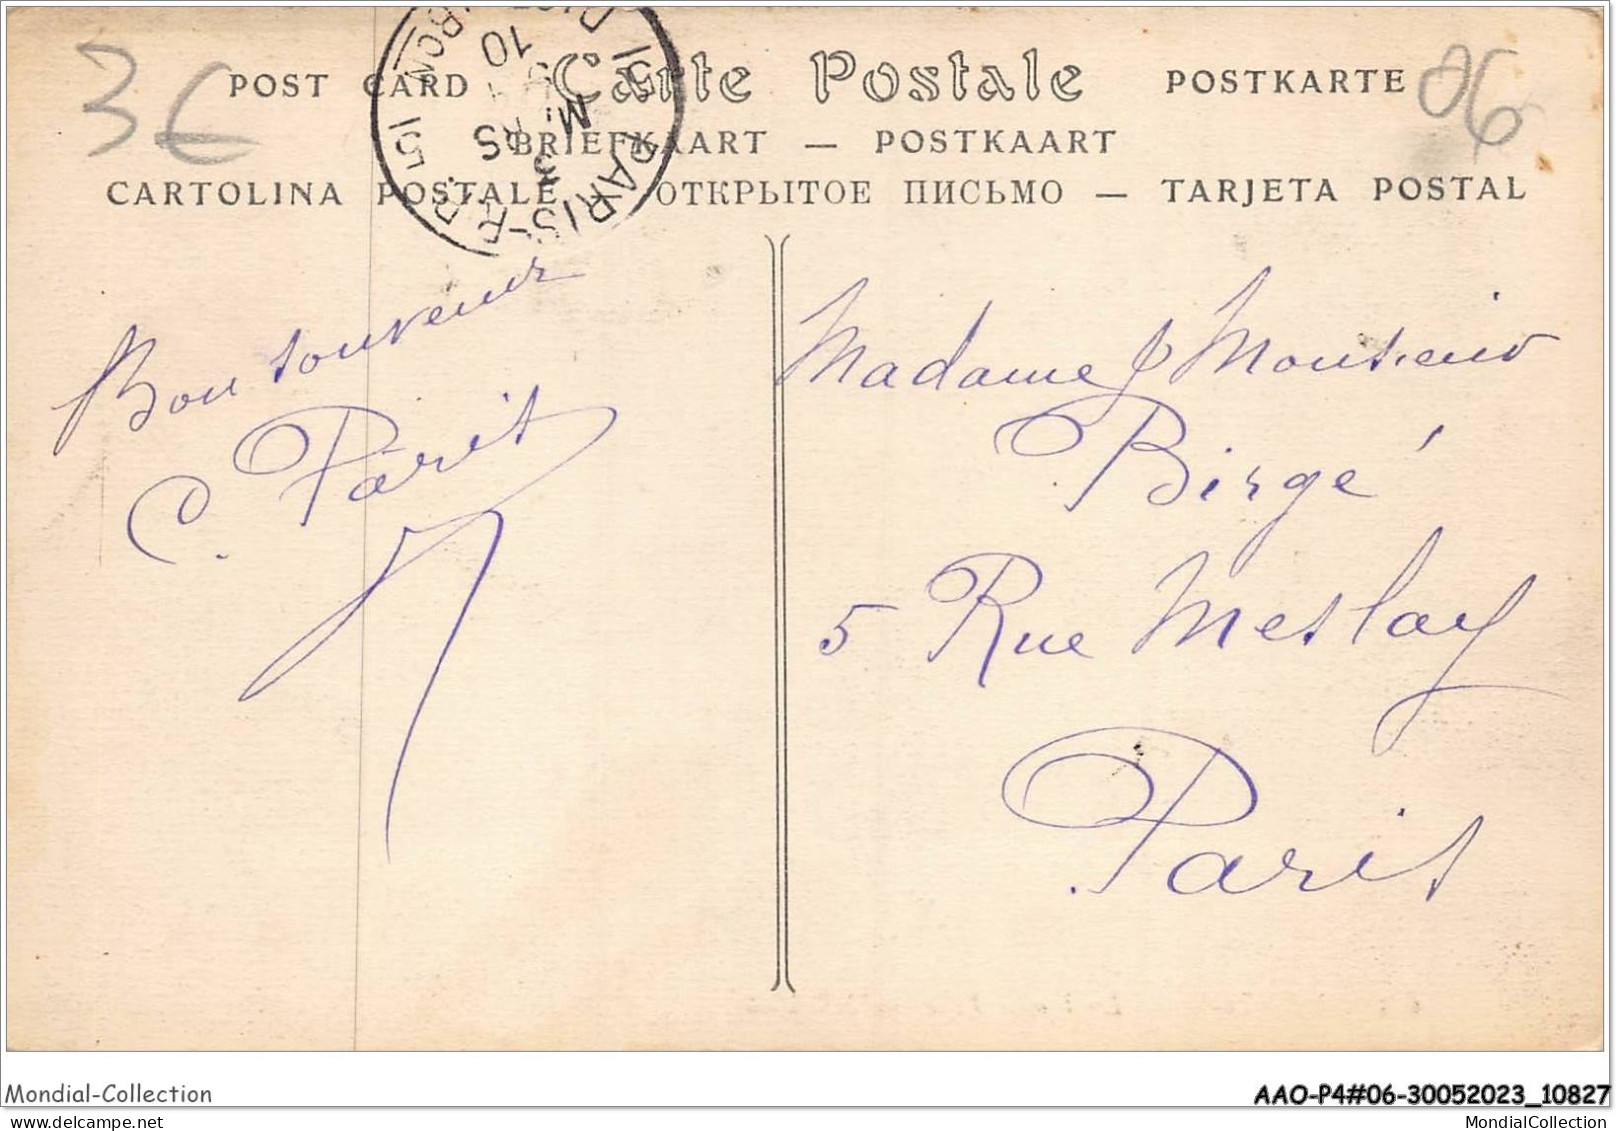 3€
POST CARD Carte Postale POSTKARTE
06
BRIEFKAART — POSTKAART
CARTOLINA POSTALE ОТКРЫТОЕ ПИСЬМО — TARJETA POSTAL
15 PARIS-R.P. 15
10
M
RS
3
Bon souvenir
C. Parit
Madame & Monsieur
Birgé
5 Rue Meslay
Paris
Mondial-Collection
AAO-P4#06-30052023_10827
MondialCollection